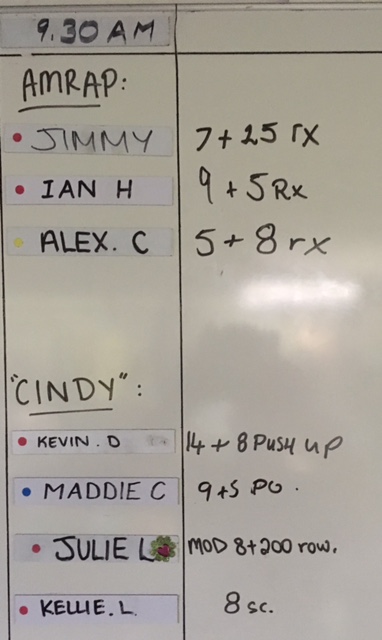 9.30 AM
AMRAP:
JIMMY 7 + 25 rx
IAN H 9 + 5 Rx
ALEX. C 5 + 8 rx
"CINDY":
KEVIN. D 14 + 8 PUSH UP
MADDIE C 9+5 PU.
JULIE L MOD 8+200 row.
KELLIE. L. 8 sc.